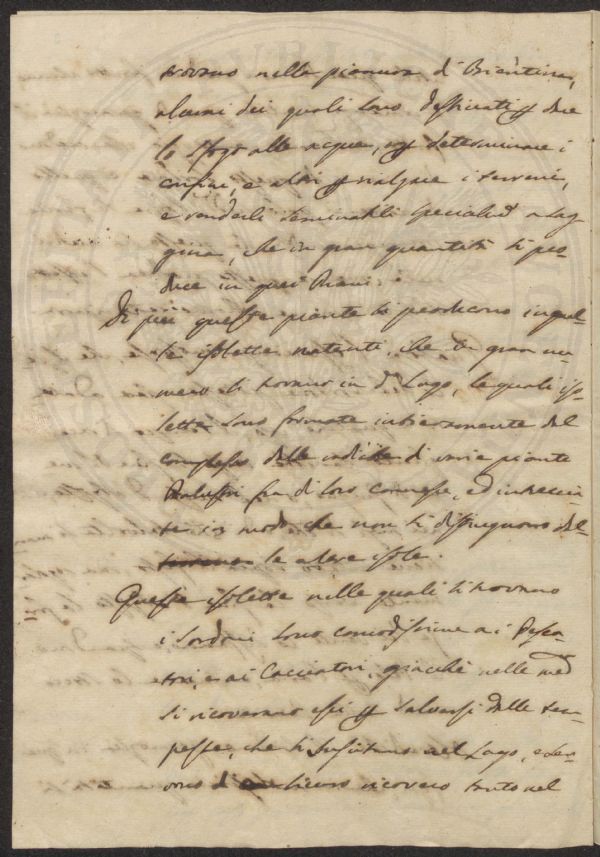 trovano nelle pianura di Bientina,
alcuni dei quali sono destinati p dare
lo sfogo alle acque, o p determinare i
confini, e altri p rialzare i terreni,
e renderli seminabili
gina, che in gran quantità si pro-
duce in quei Piani.
Di più queste piante si producono in quel-
le isolette natanti, che in gran nu-
mero si trovano in dº Lago, le quali iso-
lette sono formate intieramente del
complesso delle radiche di varie piante
Palustri fra di loro connesse, ed intreccia-
te in modo che non si distinguono dal-
le altre isole.
Queste isolette nelle quali si trovano
i sono comodissime ai Pesca-
tori, e ai Cacciatori, giacchè nelle med
si ricoverano essi p salvarsi dalle tem-
peste, che si suscitano nel Lago, e ser-
vono di sicuro ricovero tanto nel